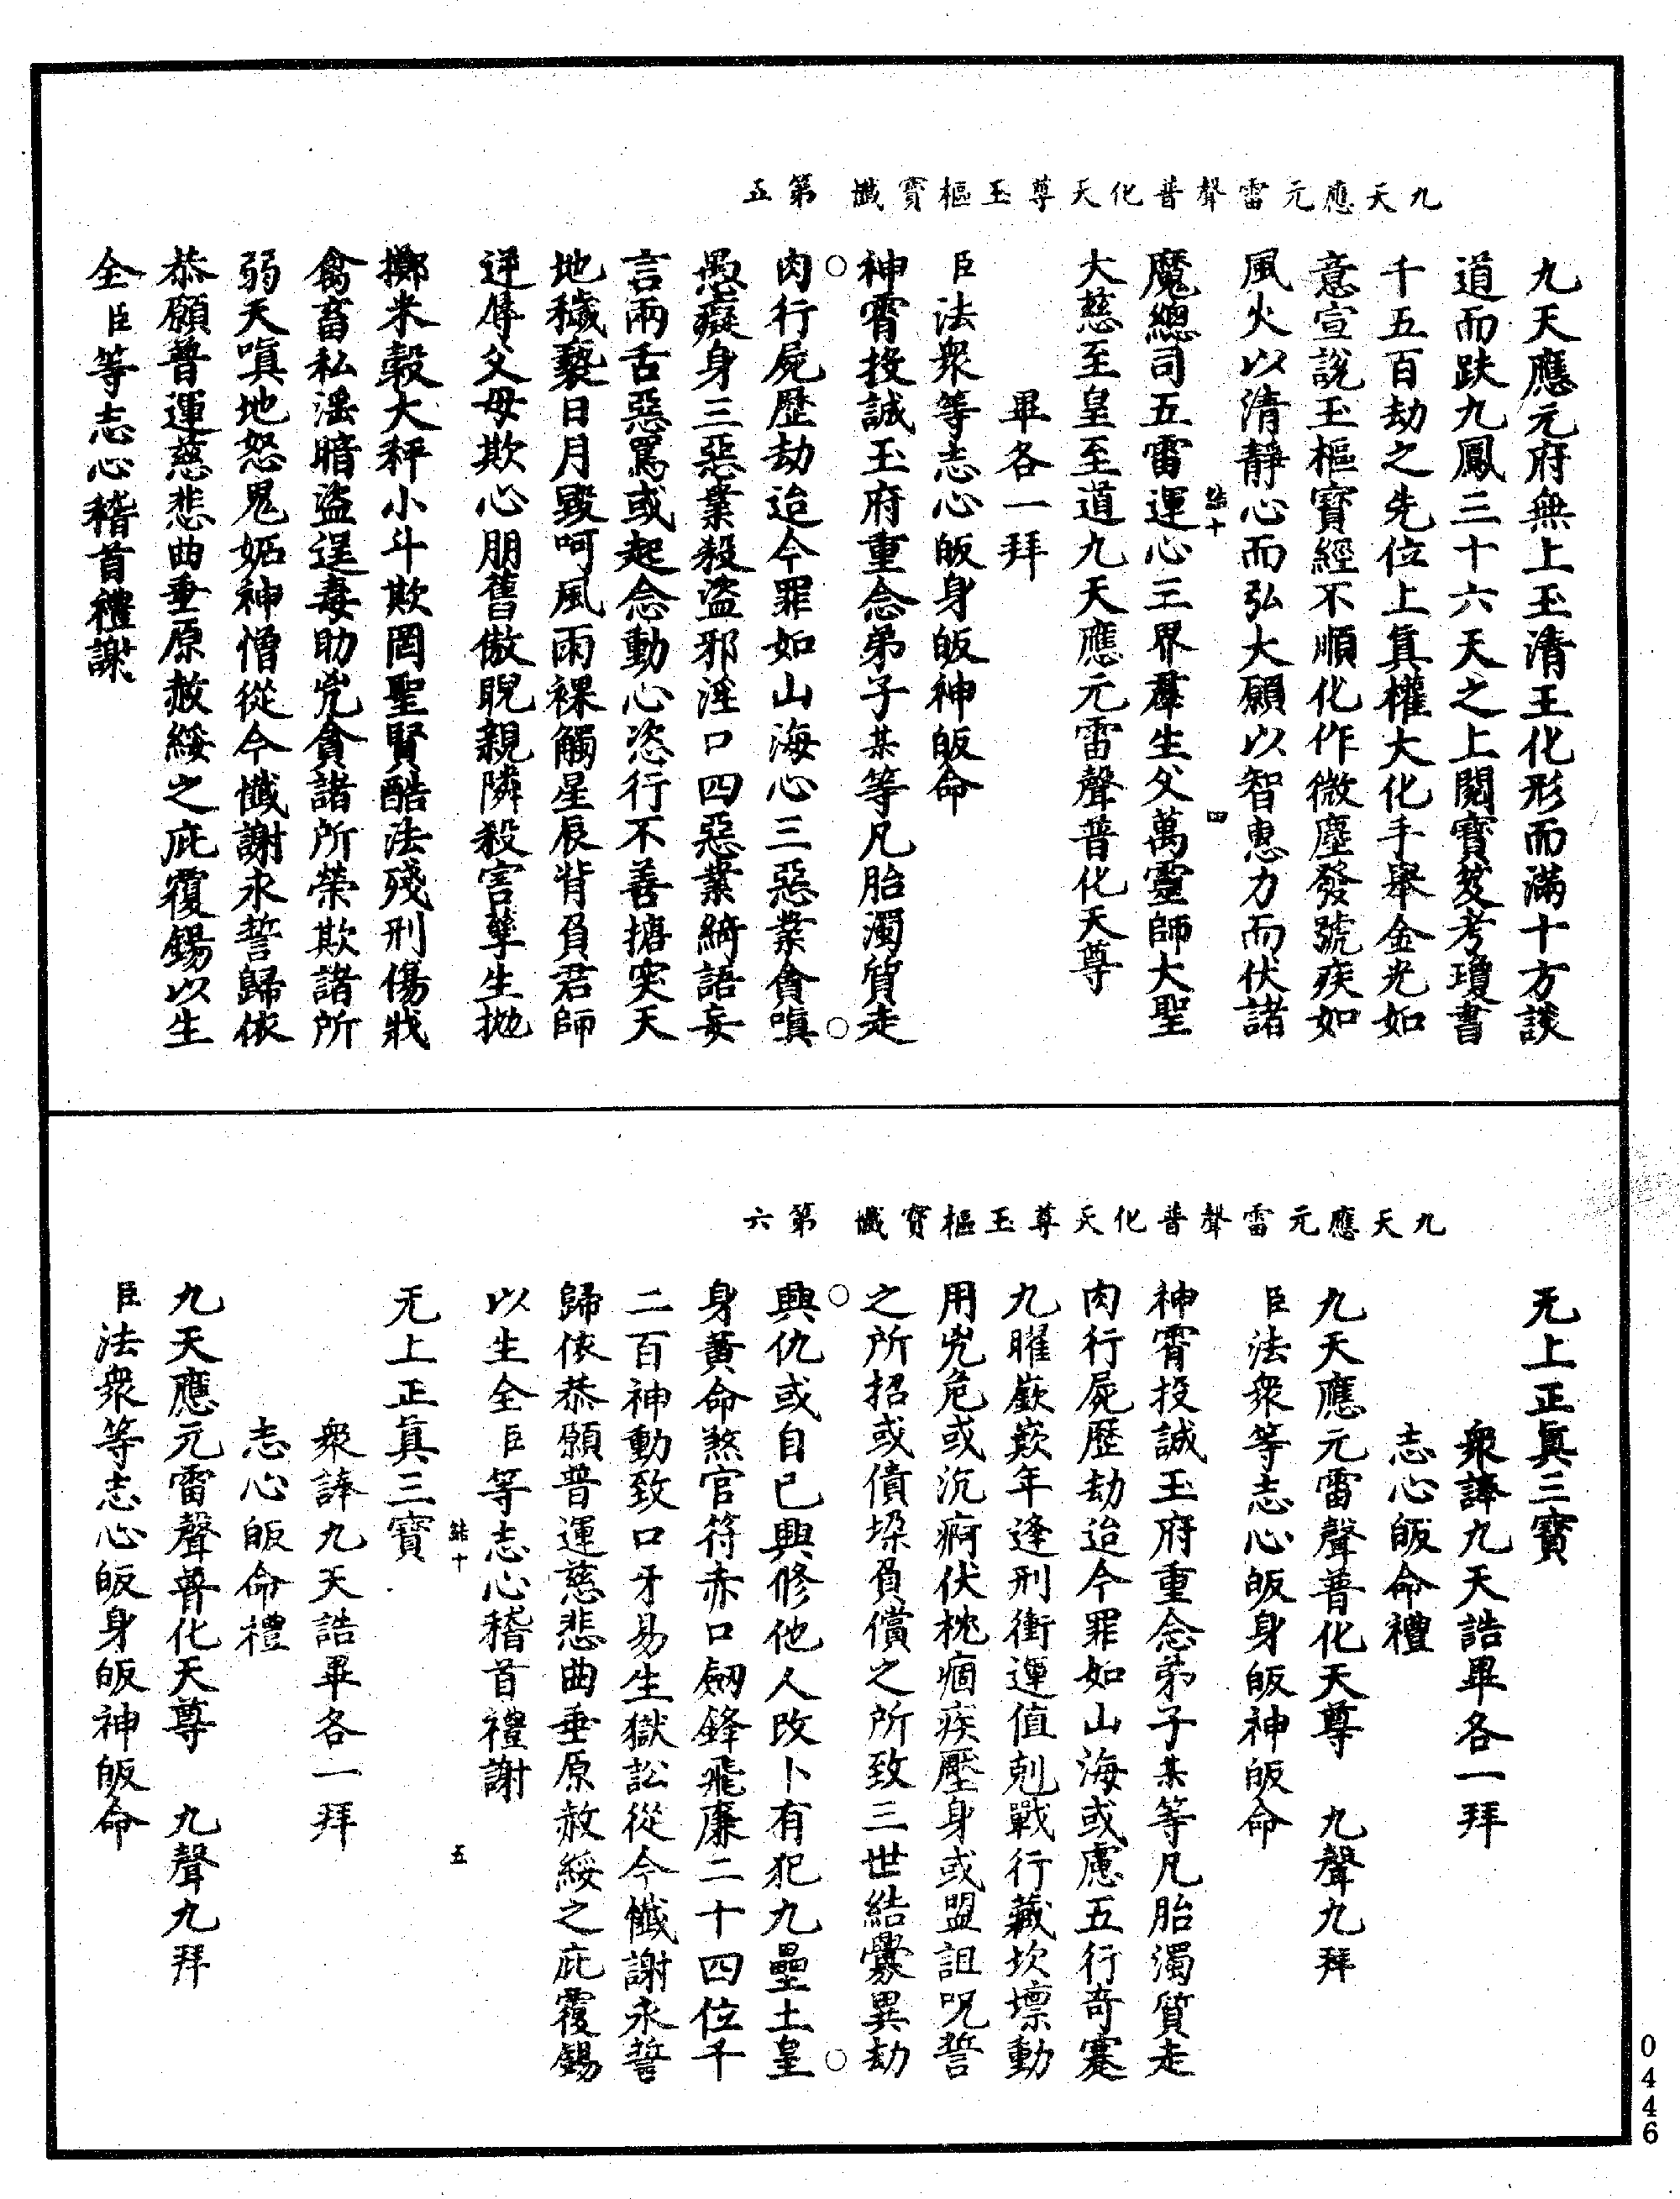 九天應元雷聲普化天尊玉樞寶懺 第五
九天應元府無上玉清王化形而滿十方談
道而趺九鳳三十六天之上閱寶笈考瓊書
千五百劫之先位上真權大化手舉金光如
意宣說玉樞寶經不順化作微塵發號疾如
風火以清靜心而弘大願以智惠力而伏諸
結十 四
魔總司五雷運心三界羣生父萬靈師大聖
大慈至皇至道九天應元雷聲普化天尊
畢各一拜
臣法衆等志心皈身皈神皈命
神霄投誠玉府重念弟子某等凡胎濁質走
肉行屍歷劫迨今罪如山海心三惡業貪嗔
愚癡身三惡業殺盜邪淫口四惡業綺語妄
言兩舌惡罵或起念動心恣行不善搪突天
地穢褻日月毀呵風雨裸觸星辰背負君師
逆辱父母欺心朋舊傲睨親隣殺害孳生拋
擲米穀大秤小斗欺罔聖賢酷法殘刑傷戕
禽畜私淫暗盜逞毒助兇貪諸所榮欺諸所
弱天嗔地怒鬼妬神憎從今懺謝永誓歸依
恭願普運慈悲曲垂原赦綏之庇覆錫以生
全臣等志心稽首禮謝
九天應元雷聲普化天尊玉樞寶懺 第六
无上正眞三寶
衆誦九天誥畢各一拜
志心皈命禮
九天應元雷聲普化天尊 九聲九拜
臣法衆等志心皈身皈神皈命
神霄投誠玉府重念弟子某等凡胎濁質走
肉行屍歷劫迨今罪如山海或慮五行奇蹇
九曜嶔嶔年逢刑衝運值剋戰行藏坎壈動
用兇危或沉痾伏枕痼疾壓身或盟詛呪誓
之所招或債垜負償之所致三世結釁異劫
興仇或自已興修他人改卜有犯九壘土皇
身黃命煞官符赤口劒鋒飛廉二十四位千
二百神動致口牙易生獄訟從今懺謝永誓
歸依恭願普運慈悲曲垂原赦綏之庇覆錫
以生全臣等志心稽首禮謝
結十 五
无上正真三寶
衆誦九天誥畢各一拜
志心皈命禮
九天應元雷聲普化天尊 九聲九拜
臣法衆等志心皈身皈神皈命
0446